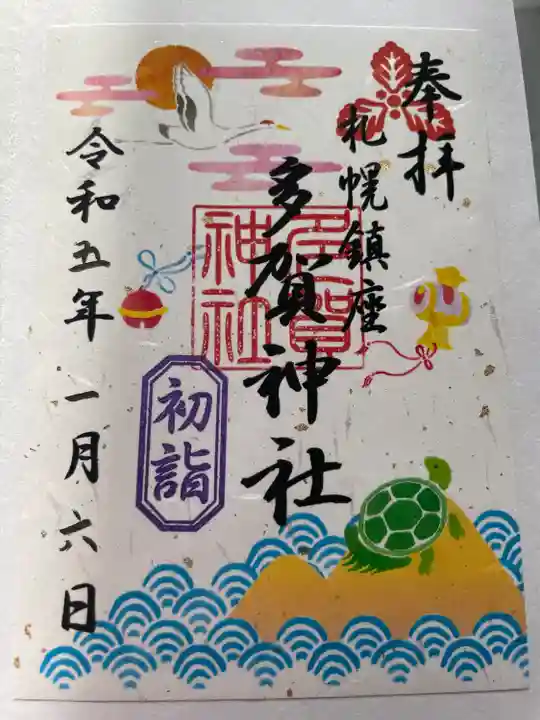 奉拝
札幌鎮座
多賀神社
多賀
神社
初詣
令和五年 一月六日